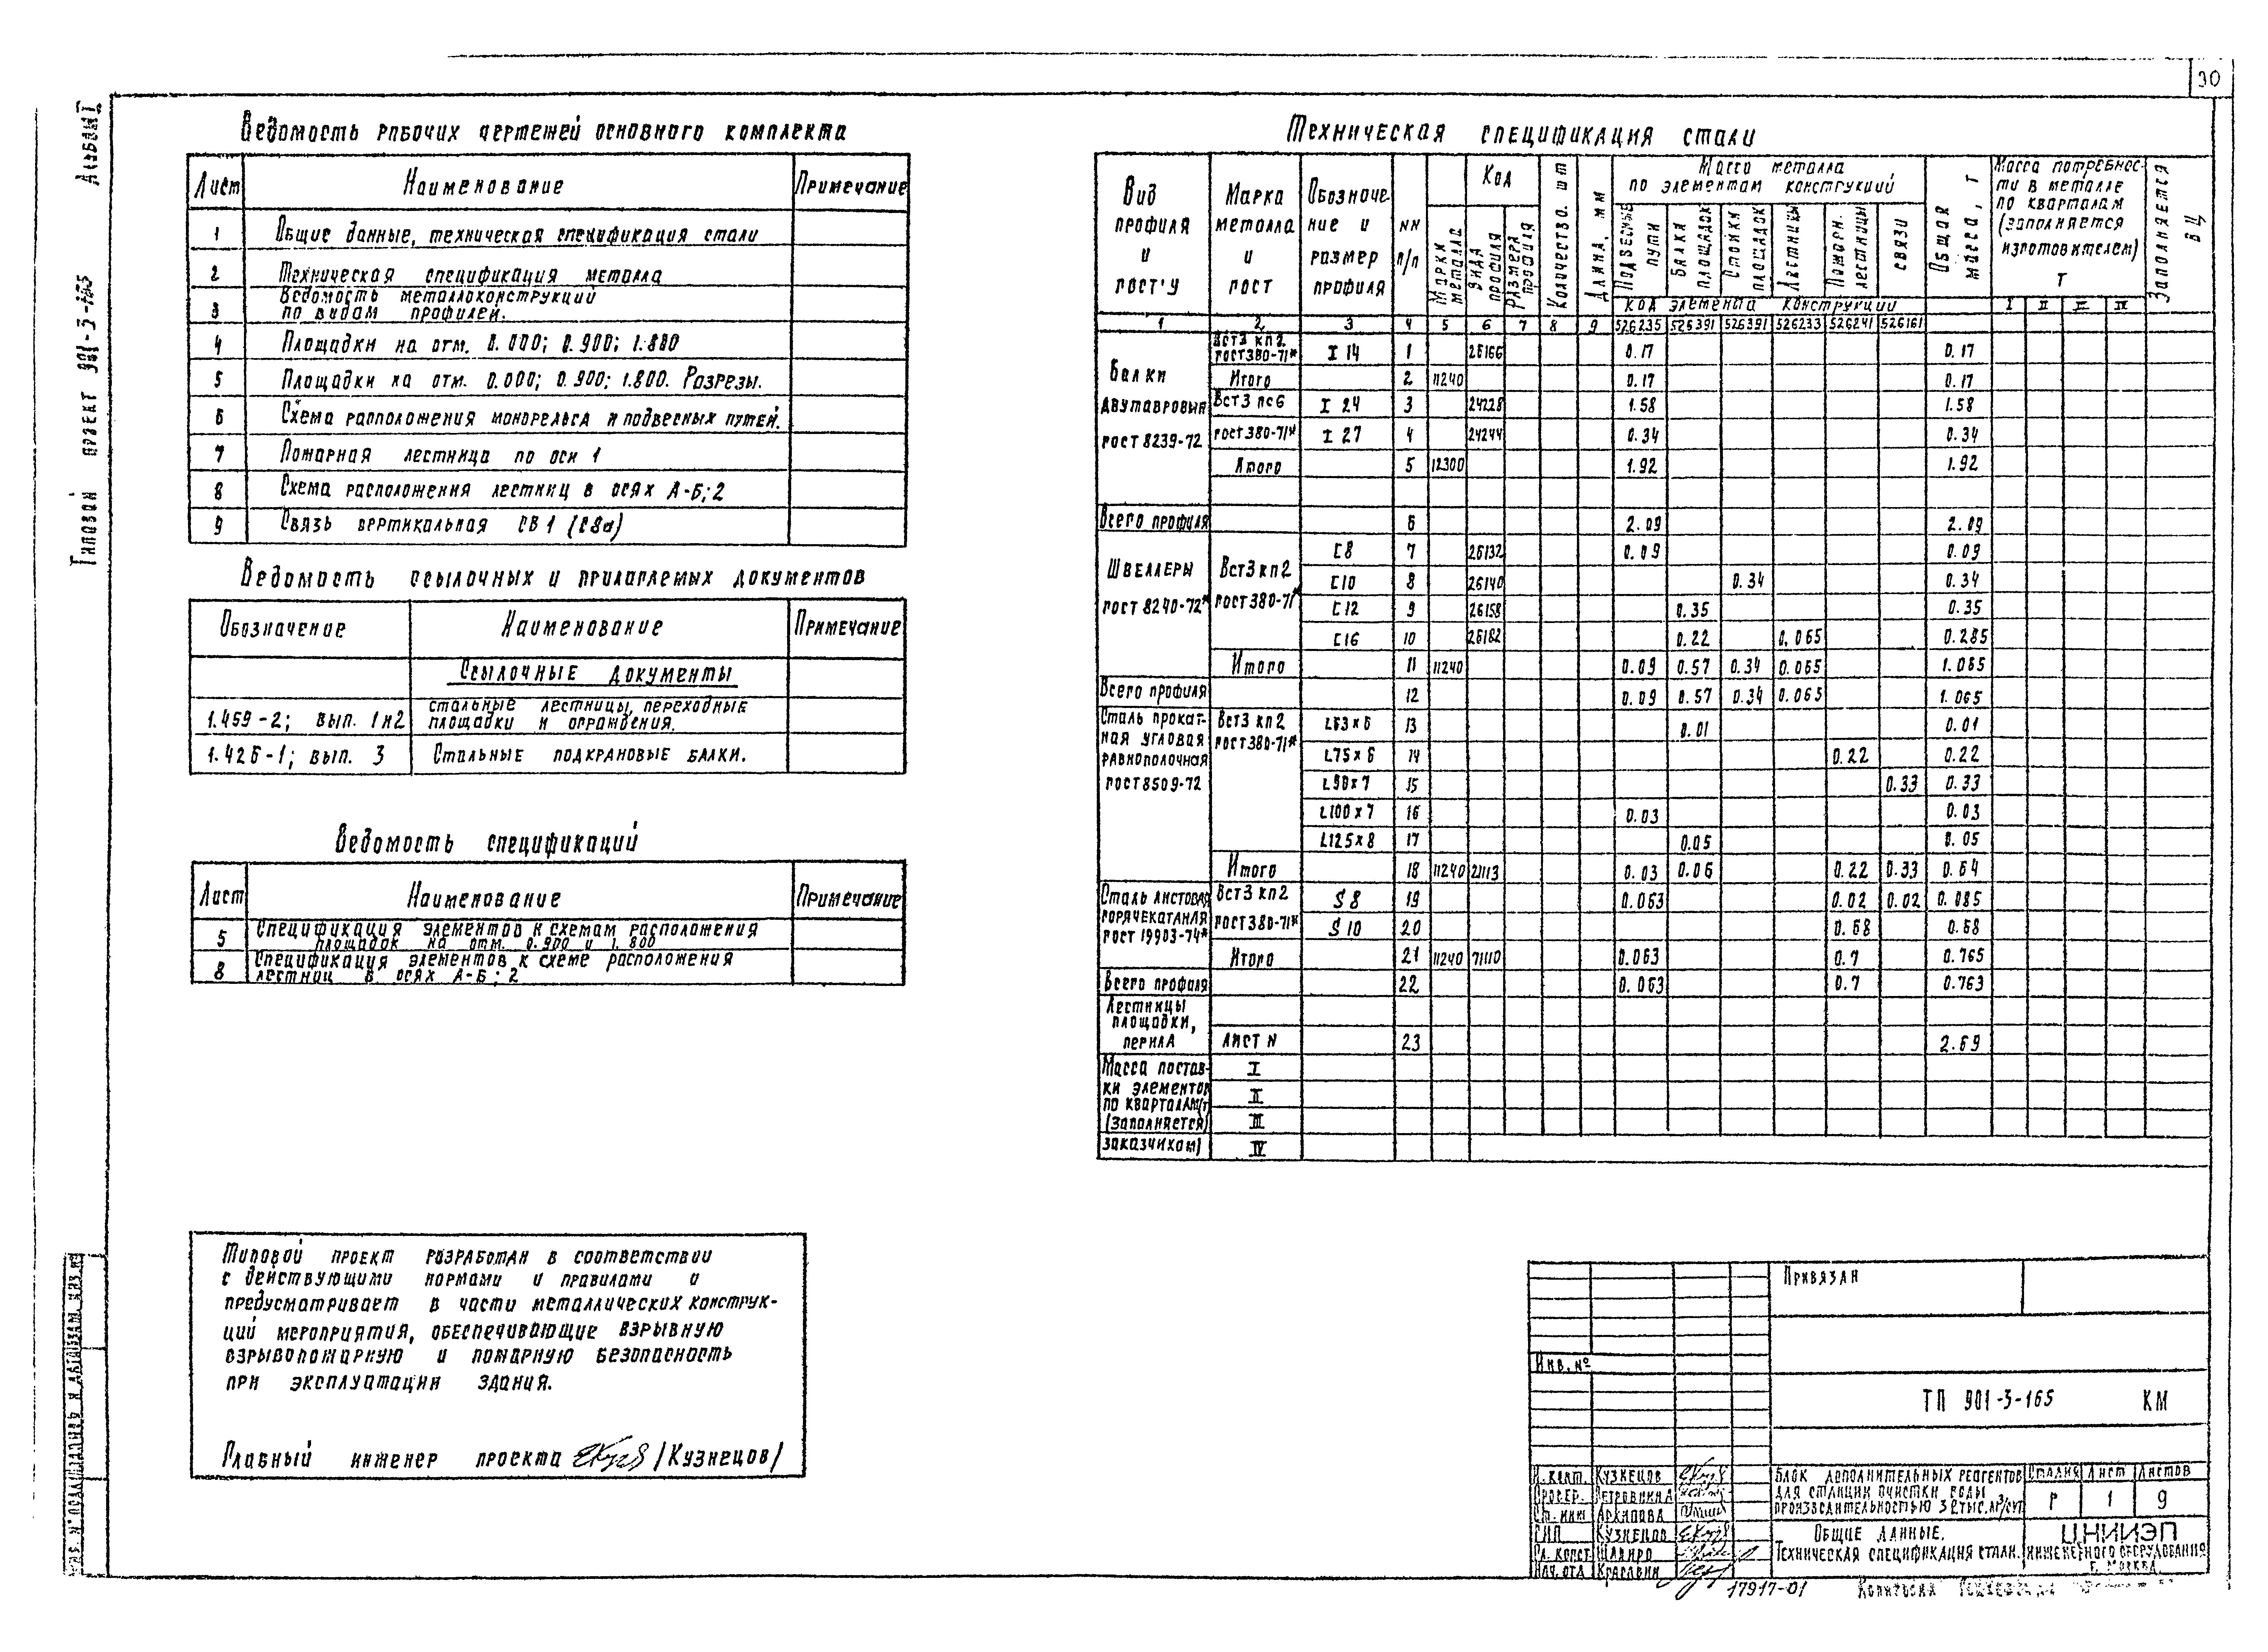 30
Альбом I
Типовой проект 901-3-165
Ведомость рабочих чертежей основного комплекта
Лист Наименование Примечание
1 Общие данные, техническая спецификация стали
2 Техническая спецификация металла
3 Ведомость металлоконструкций по видам профилей.
4 Площадки на отм. 0.000; 0.900; 1.800
5 Площадки на отм. 0.000; 0.900; 1.800. Разрезы.
6 Схема расположения монорельса и подвесных путей.
7 Пожарная лестница по оси 1
8 Схема расположения лестниц в осях А-Б; 2
9 Связь вертикальная СВ1
Ведомость ссылочных и прилагаемых документов
Обозначение Наименование Примечание
Ссылочные документы
1.459-2; вып. 1 и 2 стальные лестницы, переходные площадки и ограждения.
1.426-1; вып. 3 Стальные подкрановые балки.
Ведомость спецификаций
Лист Наименование Примечание
5 Спецификация элементов к схемам расположения площадок на отм. 0.900 и 1.800
8 Спецификация элементов к схеме расположения лестниц в осях А-Б; 2
Типовой проект разработан в соответствии
с действующими нормами и правилами и
предусматривает в части металлических конструк-
ций мероприятия, обеспечивающие взрывную
взрывопожарную и пожарную безопасность
при эксплуатации здания.
Главный инженер проекта /Кузнецов/
Техническая спецификация стали
Вид профиля и гост, у
Марка металла и гост
Обозначение и размер профиля
NN п/п
Код
Марки металла
Вида профиля
Размера профиля
Количество. шт
Длина, мм
Масса металла по элементам конструкций
Подвесные пути
Балки площадок
Стойки площадок
Лестницы
Пожарн. лестницы
связи
Код элемента конструкции
Общая масса, т
Масса потребнос-
ти в металле
по кварталам
(заполняется
изготовителем)
Т
I II III IV
Заполняется ВЦ
1 2 3 4 5 6 7 8 9 526235 526391 526391 526233 526241 526161
Балки двутавровые гост 8239-72
Вст3 кп2 гост380-71* I 14 1 26166 0.17 0.17
Итого 2 11240 0.17 0.17
Вст3 пс6 I 24 3 24228 1.58 1.58
гост380-71* I 27 4 24244 0.34 0.34
Итого 5 12300 1.92 1.92
Всего профиля 6 2.09 2.09
Швеллеры гост 8240-72*
Вст3кп2 гост380-71*
[8 7 26132 0.09 0.09
[10 8 26140 0.34 0.34
[12 9 26158 0.35 0.35
[16 10 26182 0.22 0.065 0.285
Итого 11 11240 0.09 0.57 0.34 0.065 1.065
Всего профиля 12 0.09 0.57 0.34 0.065 1.065
Сталь прокат-
ная угловая
равнополочная
гост8509-72
Вст3 кп2 гост380-71*
L63×6 13 0.01 0.01
L75×6 14 0.22 0.22
L90×7 15 0.33 0.33
L100×7 16 0.03 0.03
L125×8 17 0.05 0.05
Итого 18 11240 21113 0.03 0.06 0.22 0.33 0.64
Сталь листовая
горячекатаная
гост 19903-74*
Вст3 кп2 гост380-71*
S 8 19 0.063 0.02 0.02 0.085
S 10 20 0.68 0.68
Итого 21 11240 71110 0.063 0.7 0.765
Всего профиля 22 0.063 0.7 0.763
Лестницы
площадки,
перила
лист N 23 2.69
Масса постав-
ки элементов
по кварталам(т)
(Заполняется)
заказчиком)
I
II
III
IV
Привязан
Инв. №
ТП 901-3-165 КМ
Н. конт. Кузнецов
Провер. Петровнина
Ст. инж Архипова
ГИП Кузнецов
Гл. конст. Шапиро
Нач. отд Красавин
Блок дополнительных реагентов
для станции очистки воды
производительностью 32 тыс. м³/сут
Стадия Лист Листов
Р 1 9
Общие данные.
Техническая спецификация стали.
ЦНИИЭП
инженерного оборудования
г. Москва
17917-01
Копировал